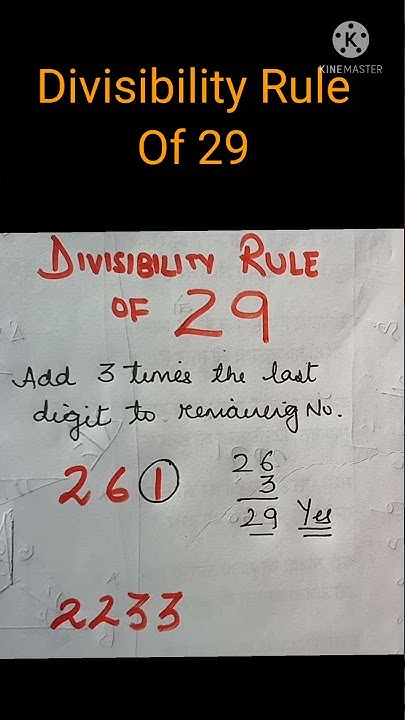 KINEMASTER
Divisibility Rule
Of 29
DIVISIBILITY RULE
OF 29
Add 3 times the last
digit to remaining No.
261
26
3
29 Yes
2233